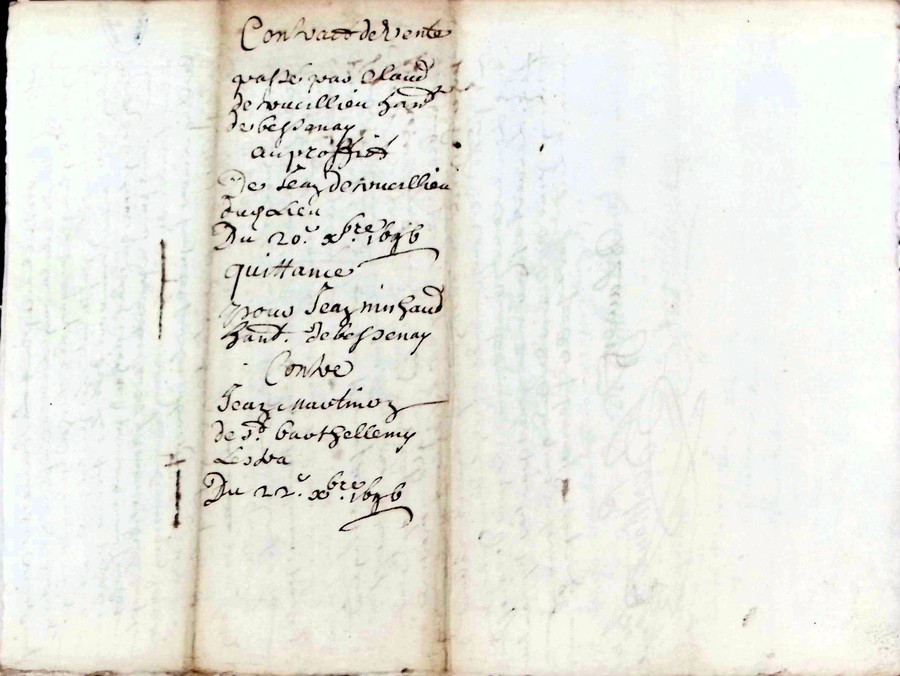 Contract de Vente
passé par Claud
de vucillieu hant
de bessenay
au proffict
De Jean de vucillieu
dud Lieu
Du 20e xbre 1696
quittance
pour Jean michaud
hant. de bessenay
Contre
Jean Martinoz
de St barthellemy
Lestra
Du 22e xbre 1696